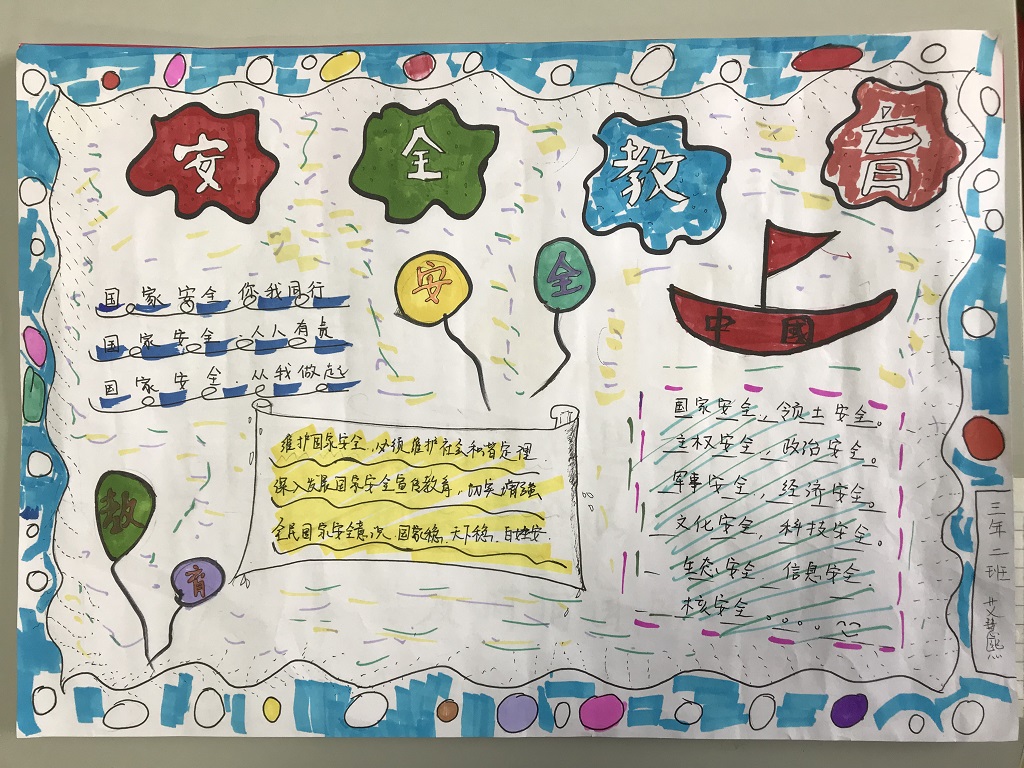 安 全 教 育
安 全
中 國
国家安全 你我同行
国家安全 人人有责
国家安全 从我做起
维护国家安全,必须维护社会和谐定理
深入发展国家安全宣传教育,切实增强
全民国家安全意识.国家稳,天下稳,
国家安全,领土安全。
主权安全,政治安全。
军事安全,经济安全。
文化安全,科技安全。
生态安全 信息安全
核安全。。。。
教 育
三年二班 艾慧熙